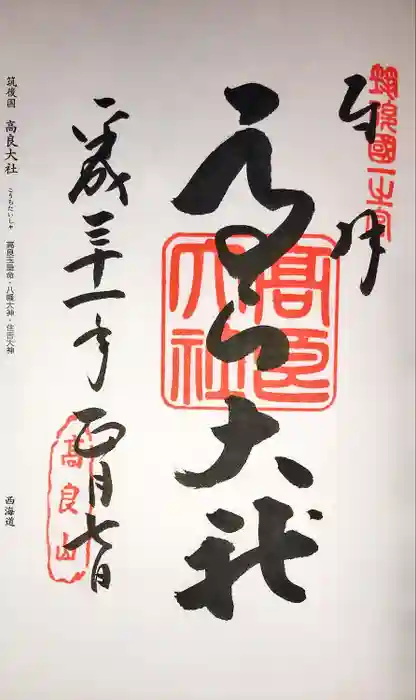 奉拝
筑後國一之宮
高良大社
高良大社
平成三十一年正月七日
高良山
筑後國 高良大社 こうらたいしゃ 高良玉垂命・八幡大神・住吉大神 西海道